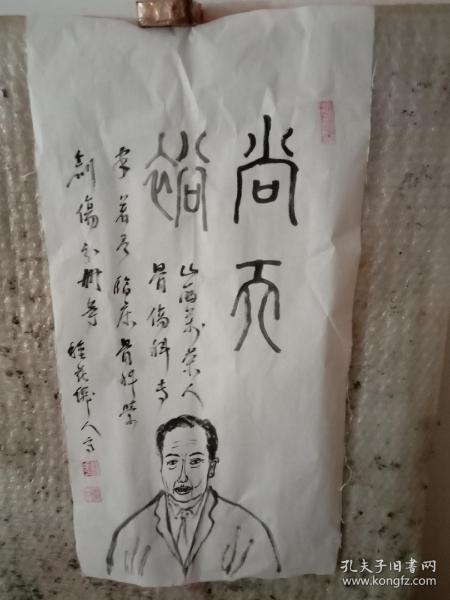 尚天
裕
山西萬荣人
骨傷科专
家著有临床骨科学
創傷分册等
人写
孔夫子旧书网
www.kongfz.com